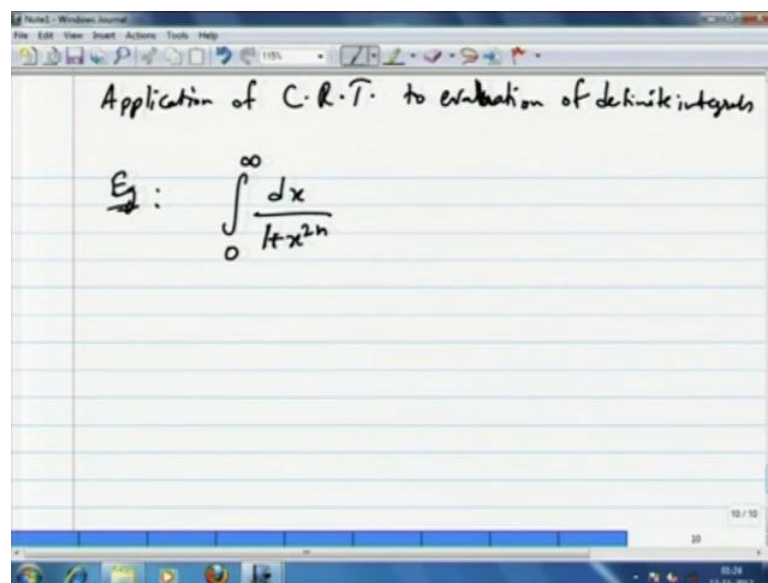 Note1 - Windows Journal
File Edit View Insert Actions Tools Help
115%
Application of C.R.T. to evaluation of definite integrals
Eg: ∫₀^∞ dx / (1+x^{2n})
10 / 10
10
01:26